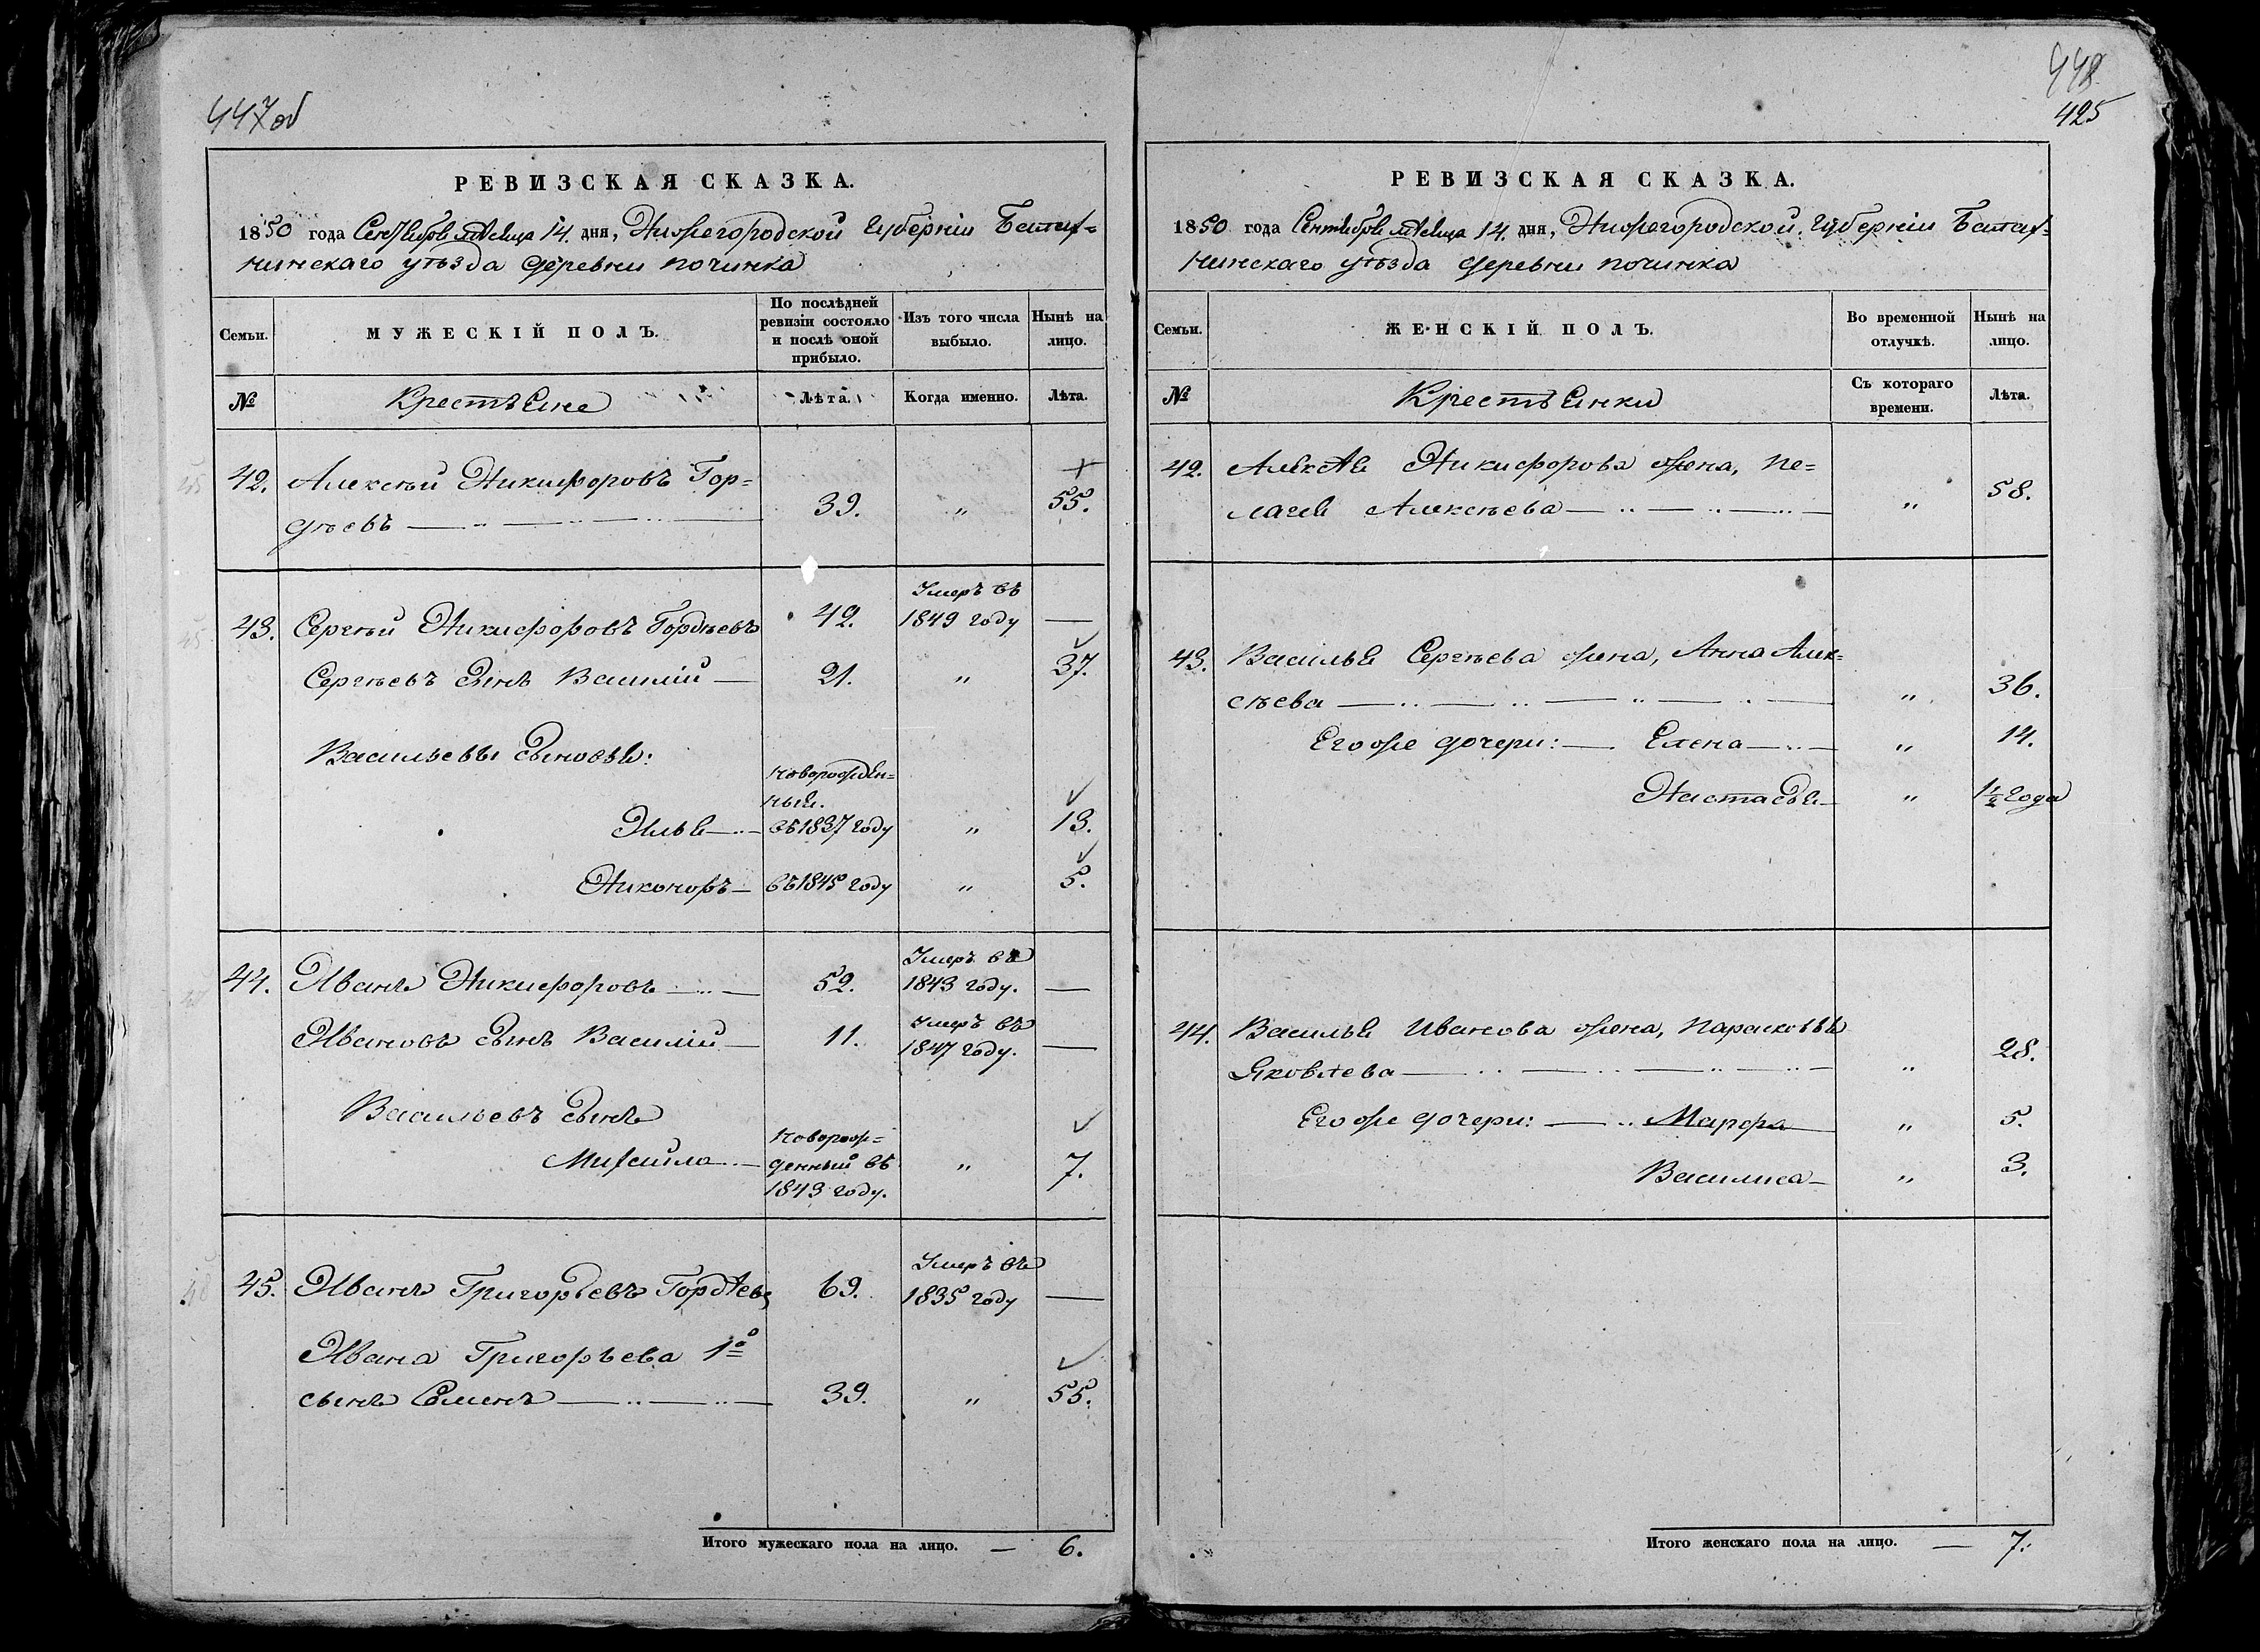 447об
РЕВИЗСКАЯ СКАЗКА.
1850 года Сентября мѣсяца 14. дня, Нижегородской Губерніи Балах=
нинскаго уѣзда деревни починка
Семьи.
МУЖЕСКІЙ ПОЛЪ.
По послѣдней ревизіи состояло и послѣ оной прибыло.
Изъ того числа выбыло.
Нынѣ на лицо.
№
Крестьяне
Лѣта.
Когда именно.
Лѣта.
42. Алексѣй Никифоровъ Гор=
дѣевъ 39. „ 55.
Умеръ въ
43. Сергѣй Никифоровъ Гордѣевъ 42. 1849 году —
Сергѣевъ сынъ Василій — 21. „ 37.
Васильевы сыновья:
новорожден=
ные.
Илья — въ 1837 году „ 13.
Никоноръ — въ 1845 году „ 5.
Умеръ въ
44. Иванъ Никифоровъ — 52. 1843 году. —
Ивановъ сынъ Василій — 11. Умеръ въ
1847 году. —
Васильевъ сынъ
Михайла — новорож=
денный въ „ 7.
1843 году.
Умеръ въ
45. Иванъ Григорьевъ Гордѣевъ 69. 1835 году —
Ивана Григорьева 1º
сынъ Семенъ — 39. „ 55.
Итого мужескаго пола на лицо. — 6.
448
425
РЕВИЗСКАЯ СКАЗКА.
1850 года Сентября мѣсяца 14. дня, Нижегородской Губерніи Балах=
нинскаго уѣзда деревни починка
Семьи.
ЖЕНСКІЙ ПОЛЪ.
Во временной отлучкѣ.
Нынѣ на лицо.
№
Крестьянки
Съ котораго времени.
Лѣта.
42. Алексѣя Никифорова жена, Пе=
лагея Алексѣева — „ 58.
43. Василья Сергѣева жена, Анна Алек=
сѣева — „ 36.
Егоже дочери: — Елена — „ 14.
Настасья — „ 1½ года
44. Василья Иванова жена, Парасковья
Яковлева — „ 28.
Егоже дочери: — Марфа „ 5.
Василиса — „ 3.
Итого женскаго пола на лицо. — 7.